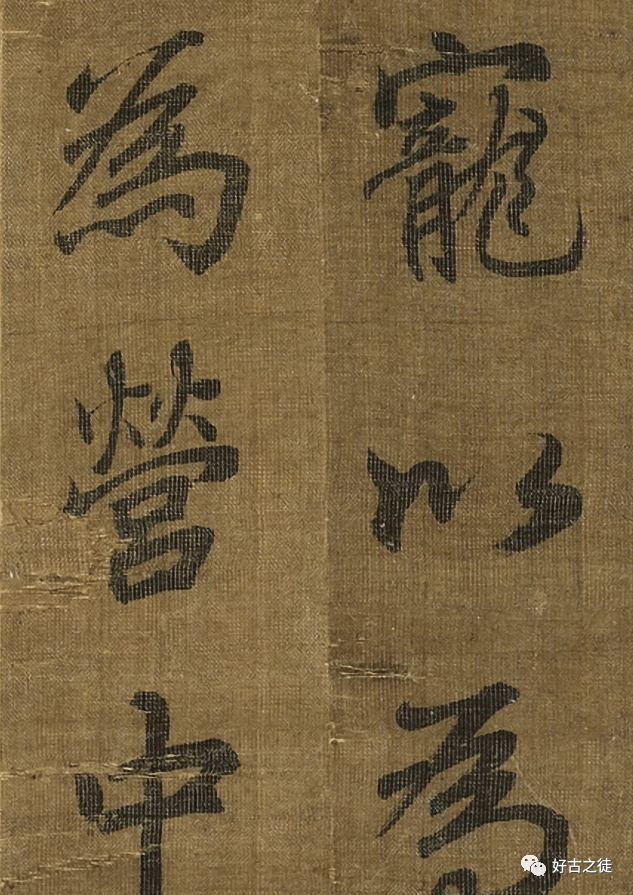 寵以為
為營中
好古之徒